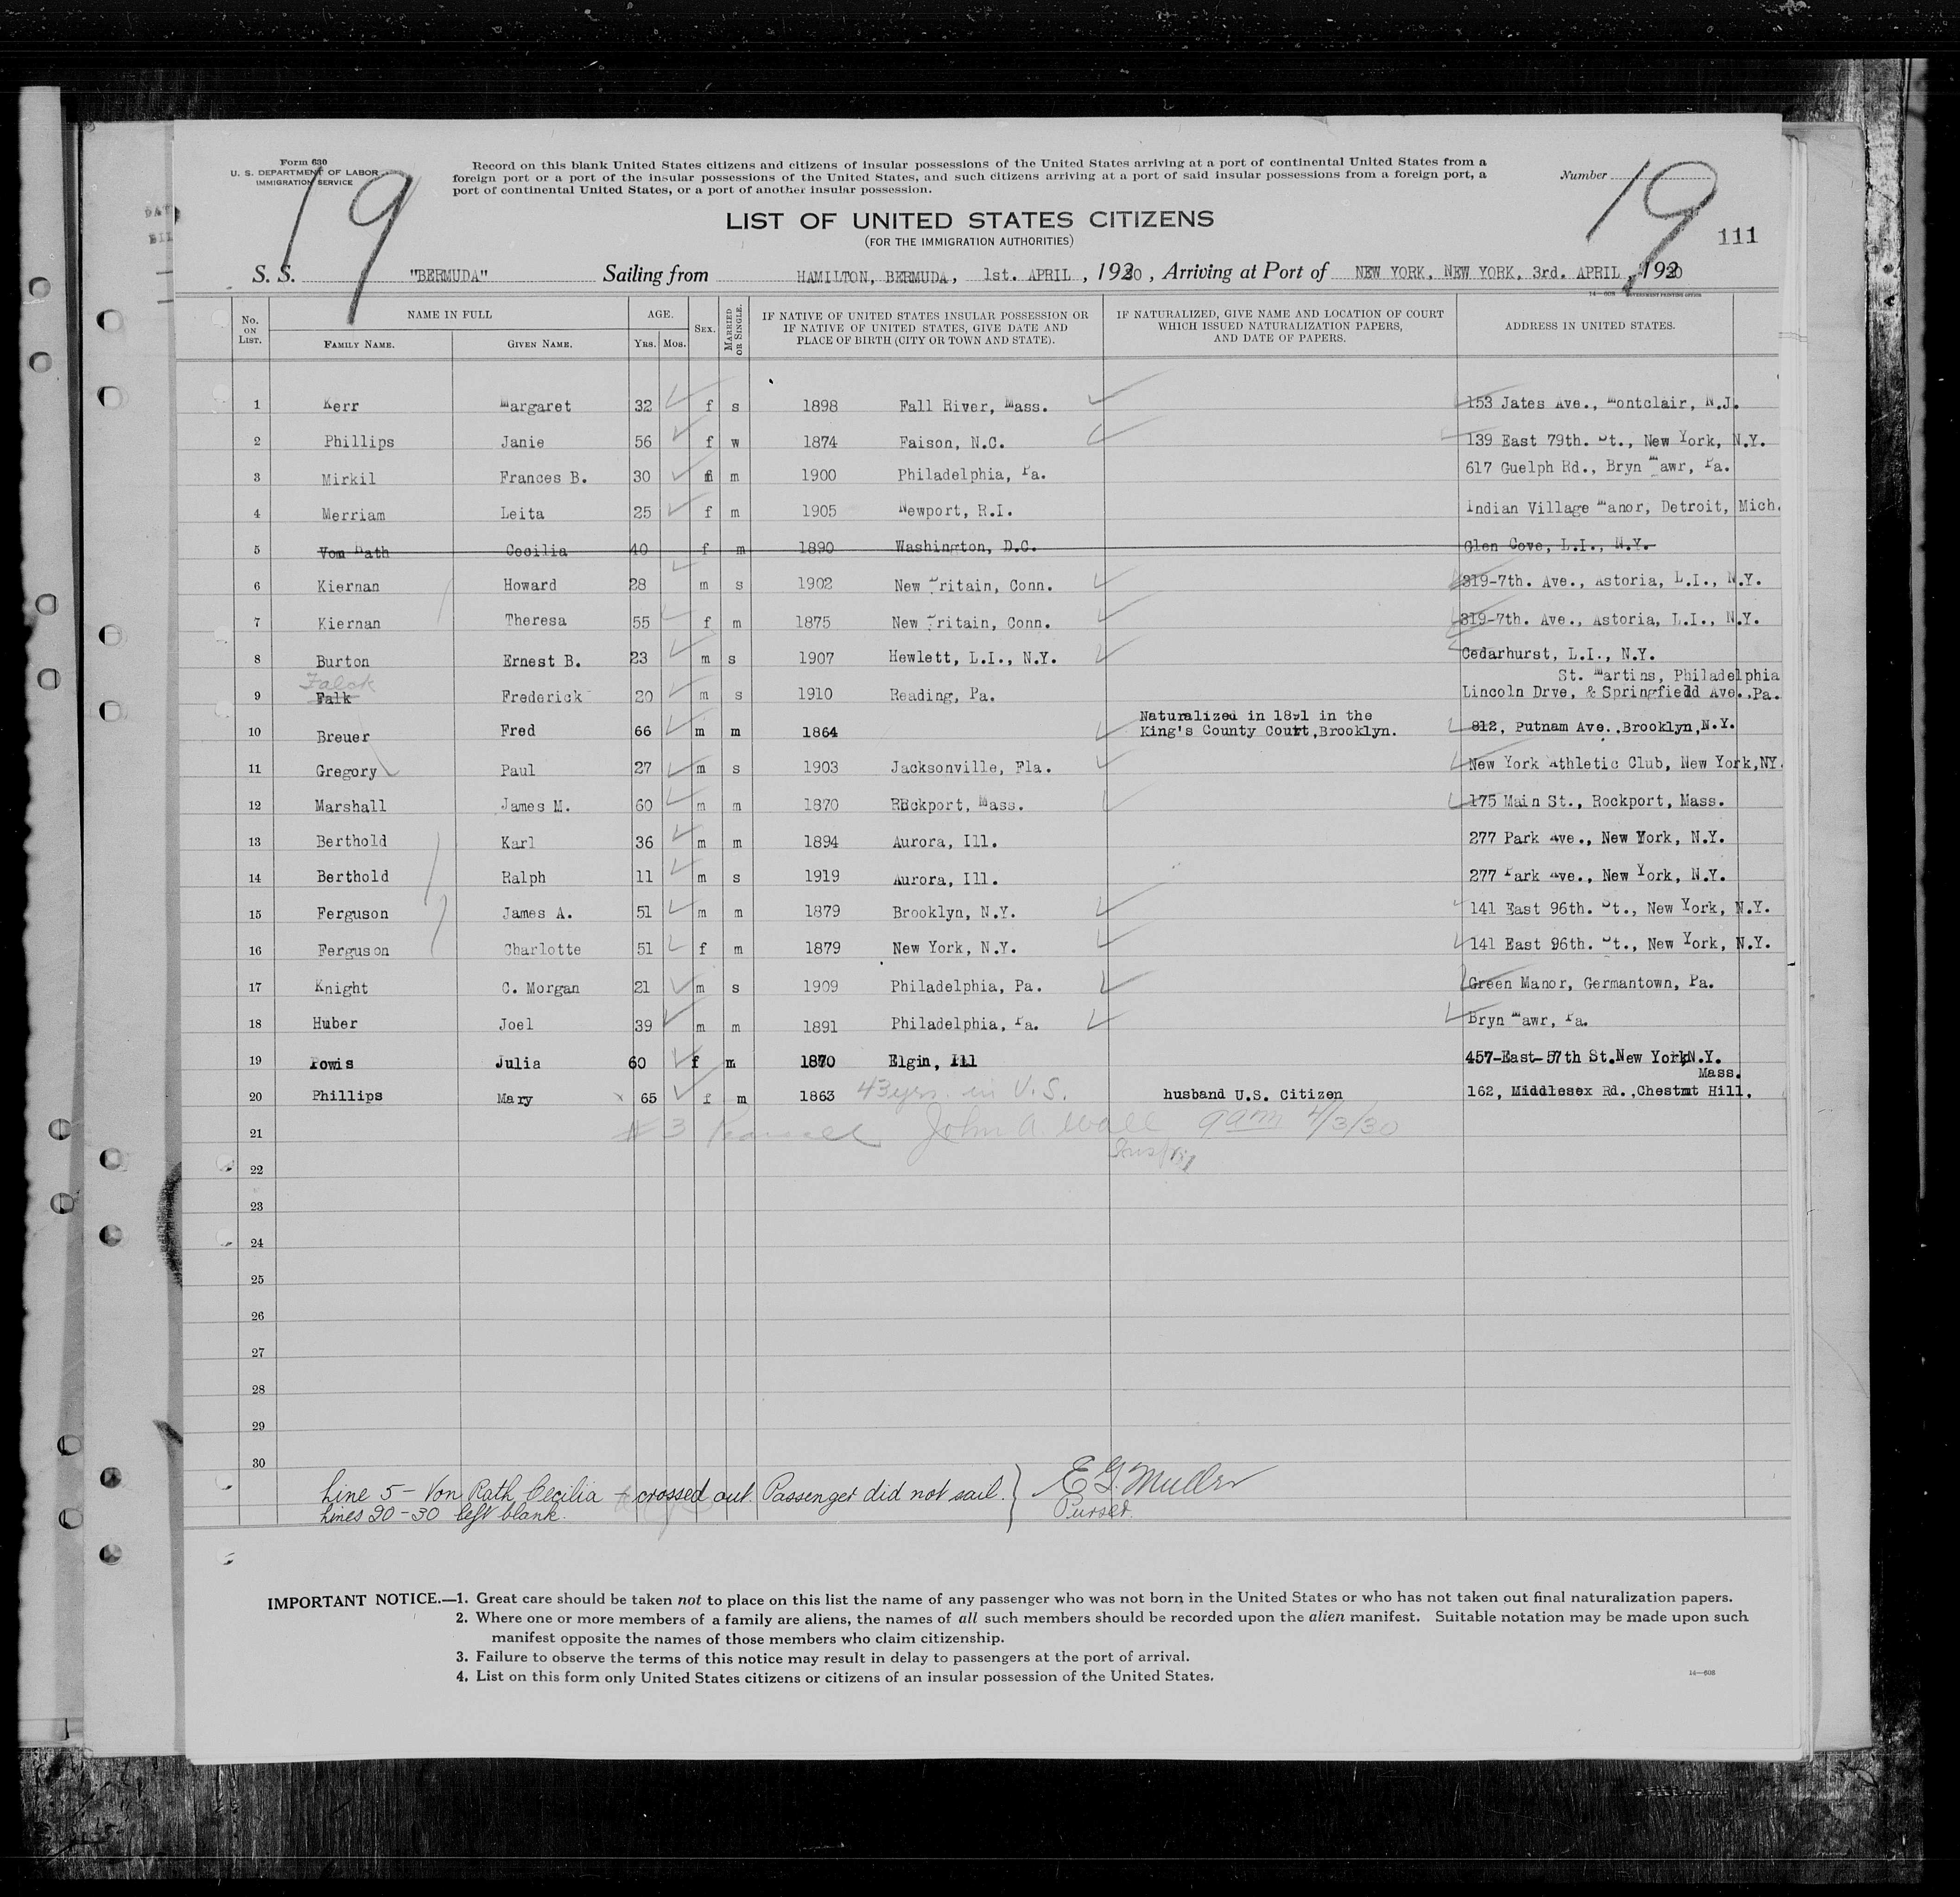 Form 630
U. S. DEPARTMENT OF LABOR
IMMIGRATION SERVICE
19
Record on this blank United States citizens and citizens of insular possessions of the United States arriving at a port of continental United States from a
foreign port or a port of the insular possessions of the United States, and such citizens arriving at a port of said insular possessions from a foreign port, a
port of continental United States, or a port of another insular possession.
Number
19
111
LIST OF UNITED STATES CITIZENS
(FOR THE IMMIGRATION AUTHORITIES)
S. S. "BERMUDA" Sailing from HAMILTON, BERMUDA, 1st. APRIL , 1930 , Arriving at Port of NEW YORK, NEW YORK, 3rd. APRIL , 1930
14—608 GOVERNMENT PRINTING OFFICE
No. ON LIST. NAME IN FULL FAMILY NAME. GIVEN NAME. AGE. YRS. MOS. SEX. MARRIED OR SINGLE. IF NATIVE OF UNITED STATES INSULAR POSSESSION OR IF NATIVE OF UNITED STATES, GIVE DATE AND PLACE OF BIRTH (CITY OR TOWN AND STATE). IF NATURALIZED, GIVE NAME AND LOCATION OF COURT WHICH ISSUED NATURALIZATION PAPERS, AND DATE OF PAPERS. ADDRESS IN UNITED STATES.
1 Kerr Margaret 32 f s 1898 Fall River, Mass. 153 Jates Ave., Montclair, N.J.
2 Phillips Janie 56 f w 1874 Faison, N.C. 139 East 79th. St., New York, N.Y.
3 Mirkil Frances B. 30 m 1900 Philadelphia, Pa. 617 Guelph Rd., Bryn Mawr, Pa.
4 Merriam Leita 25 f m 1905 Newport, R.I. Indian Village Manor, Detroit, Mich.
5 Vom Rath Cecilia 40 f m 1890 Washington, D.C. Glen Cove, L.I., N.Y.
6 Kiernan Howard 28 m s 1902 New Britain, Conn. 319-7th. Ave., Astoria, L.I., N.Y.
7 Kiernan Theresa 55 f m 1875 New Britain, Conn. 319-7th. Ave., Astoria, L.I., N.Y.
8 Burton Ernest B. 23 m s 1907 Hewlett, L.I., N.Y. Cedarhurst, L.I., N.Y.
Falck St. Martins, Philadelphia
9 Falk Frederick 20 m s 1910 Reading, Pa. Lincoln Drve, & Springfield Ave., Pa.
Naturalized in in the
10 Breuer Fred 66 m m 1864 King's County Court,Brooklyn. 812, Putnam Ave.,Brooklyn,N.Y.
11 Gregory Paul 27 m s 1903 Jacksonville, Fla. New York Athletic Club, New York,NY.
12 Marshall James M. 60 m m 1870 Rockport, Mass. 175 Main St., Rockport, Mass.
13 Berthold Karl 36 m m 1894 Aurora, Ill. 277 Park Ave., New York, N.Y.
14 Berthold Ralph 11 m s 1919 Aurora, Ill. 277 Park Ave., New York, N.Y.
15 Ferguson James A. 51 m m 1879 Brooklyn, N.Y. 141 East 96th. St., New York, N.Y.
16 Ferguson Charlotte 51 f m 1879 New York, N.Y. 141 East 96th. St., New York, N.Y.
17 Knight C. Morgan 21 m s 1909 Philadelphia, Pa. Green Manor, Germantown, Pa.
18 Huber Joel 39 m m 1891 Philadelphia, Pa. Bryn Mawr, Pa.
19 Powis Julia 60 f m 1870 Elgin, Ill 457-East-57th St.New York N.Y.
Mass.
20 Phillips Mary x 65 f m 1863 43 yrs. in U.S. husband U.S. Citizen 162, Middlesex Rd.,Chestnt Hill.
21 # 3 John A. Wall 9 am 4/3/30
22
23
24
25
26
27
28
29
30
Line 5 - Von Rath, Cecilia - crossed out. Passenger did not sail. } E G. Muller
Lines 20 - 30 left blank. Purser.
IMPORTANT NOTICE.—1. Great care should be taken not to place on this list the name of any passenger who was not born in the United States or who has not taken out final naturalization papers.
2. Where one or more members of a family are aliens, the names of all such members should be recorded upon the alien manifest. Suitable notation may be made upon such
manifest opposite the names of those members who claim citizenship.
3. Failure to observe the terms of this notice may result in delay to passengers at the port of arrival.
4. List on this form only United States citizens or citizens of an insular possession of the United States.
14—608